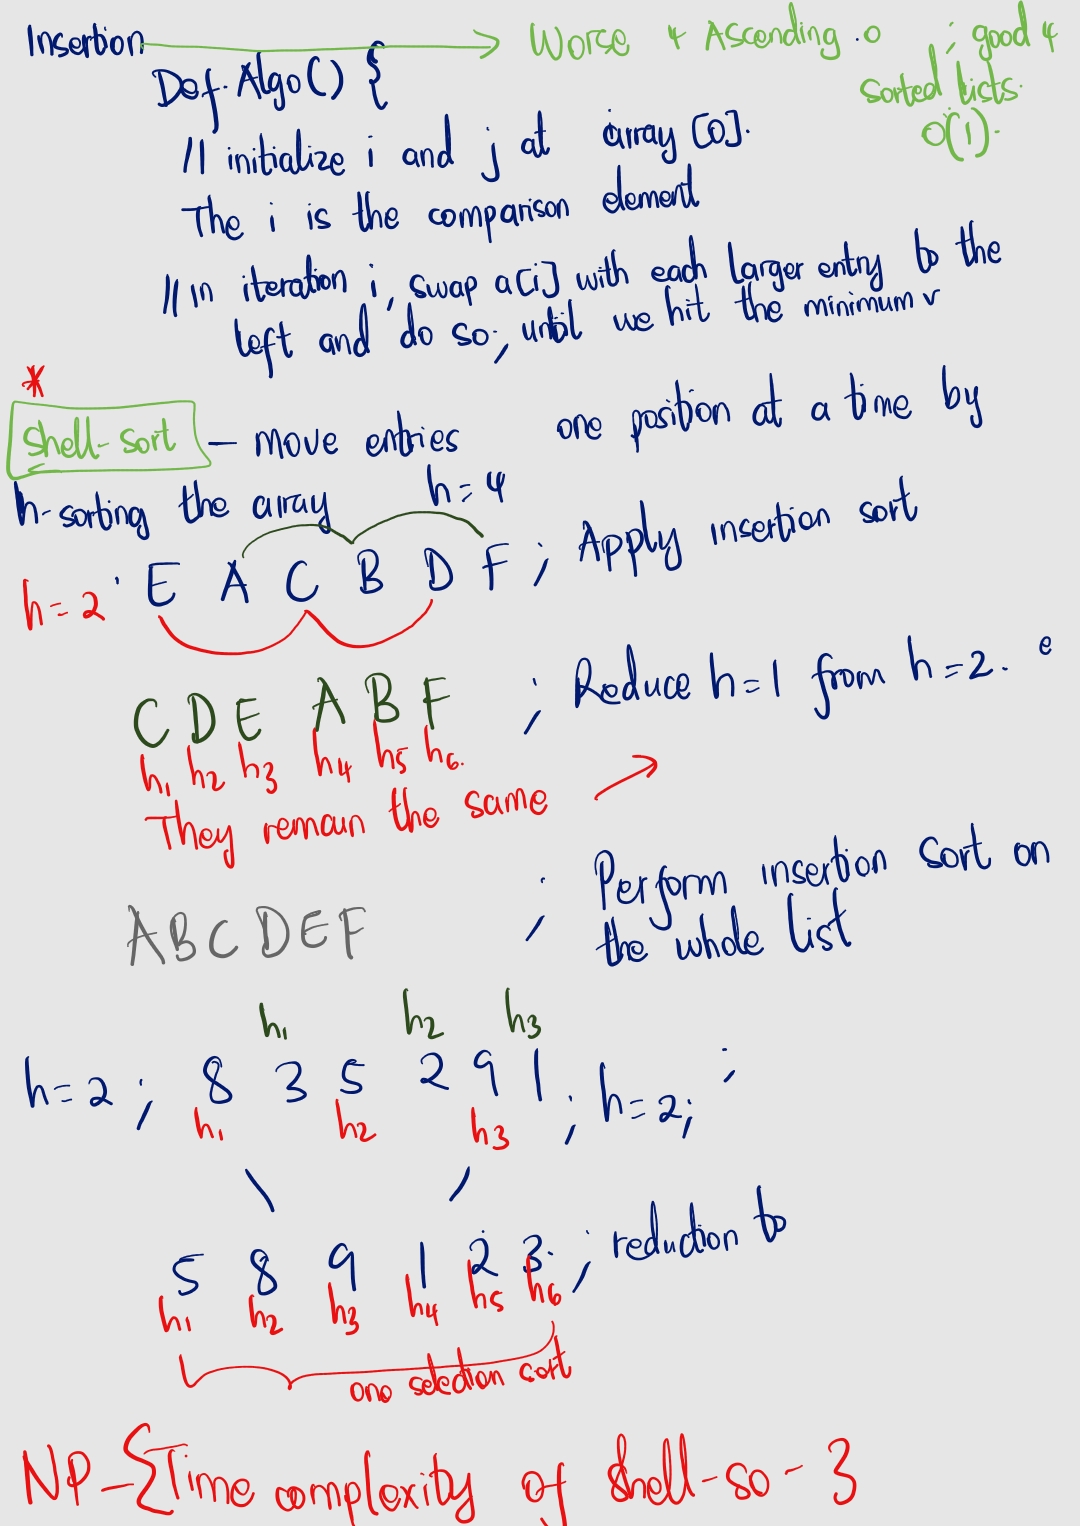 Insertion → Worse 4 Ascending .0 ; good 4
Sorted lists.
O(1).
Def. Algo() {
// initialize i and j at array [0].
The i is the comparison element
// in iteration i, swap a[i] with each larger entry to the
left and do so; until we hit the minimum v
*
Shell-sort — move entries one position at a time by
h-sorting the array h=4
h=2 E A C B D F ; Apply insertion sort
C D E A B F ; Reduce h=1 from h=2. e
h1 h2 h3 h4 h5 h6.
They remain the same →
A B C D E F ; Perform insertion sort on
the whole list
h1 h2 h3
h=2 ; 8 3 5 2 9 1 ; h=2; ;
h1 h2 h3
5 8 9 1 2 3. ; reduction to
h1 h2 h3 h4 h5 h6
one selection sort
NP-{Time complexity of shell-so-3